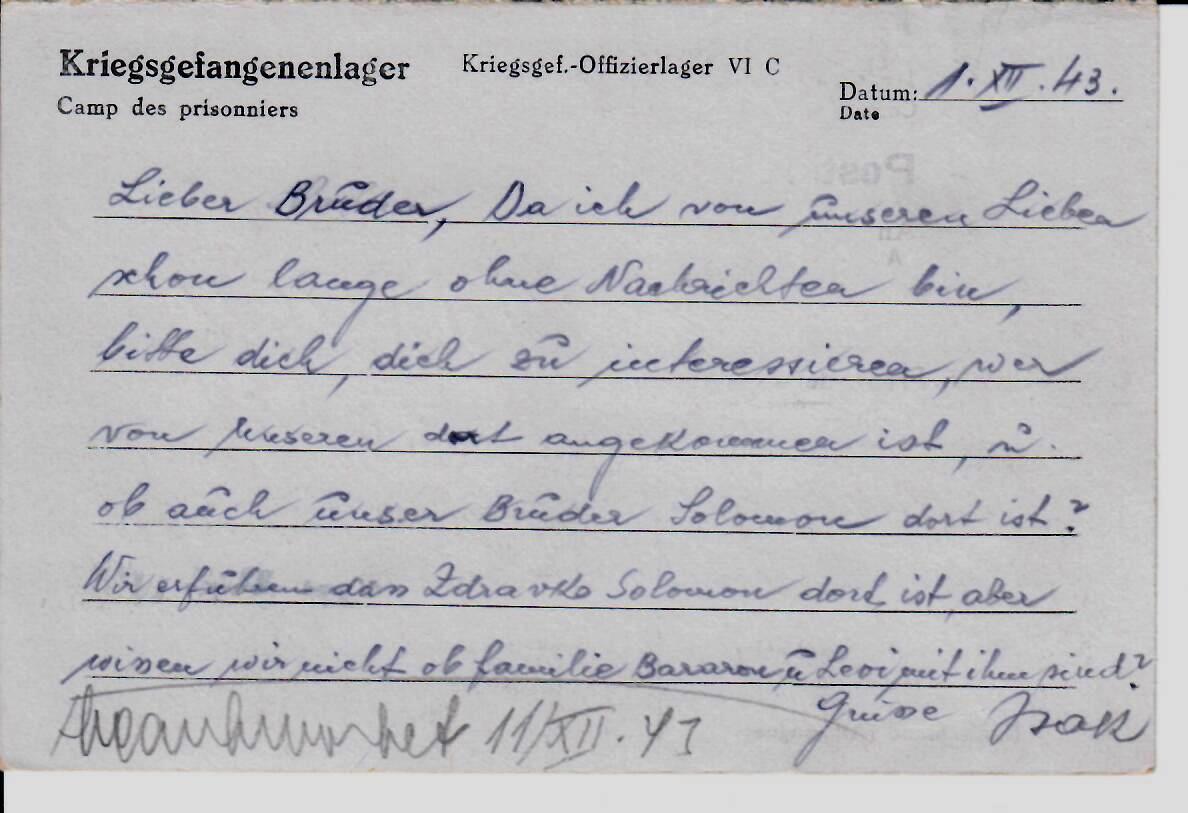 Kriegsgefangenenlager
Camp des prisonniers
Kriegsgef.-Offizierlager VI C
Datum: 1. XII. 43.
Date
Lieber Bruder, Da ich von unseren Lieben
schon lange ohne Nachrichten bin,
bitte dich, dich zu interessieren, wer
von unseren dort angekommen ist, u.
ob auch unser Bruder Solomon dort ist?
Wir erfuhren dass Zdravko Solomon dort ist, aber
wissen wir nicht ob familie Bararon u Levi mit ihm sind?
Grüsse Isak
Beantwortet 11/XII. 43